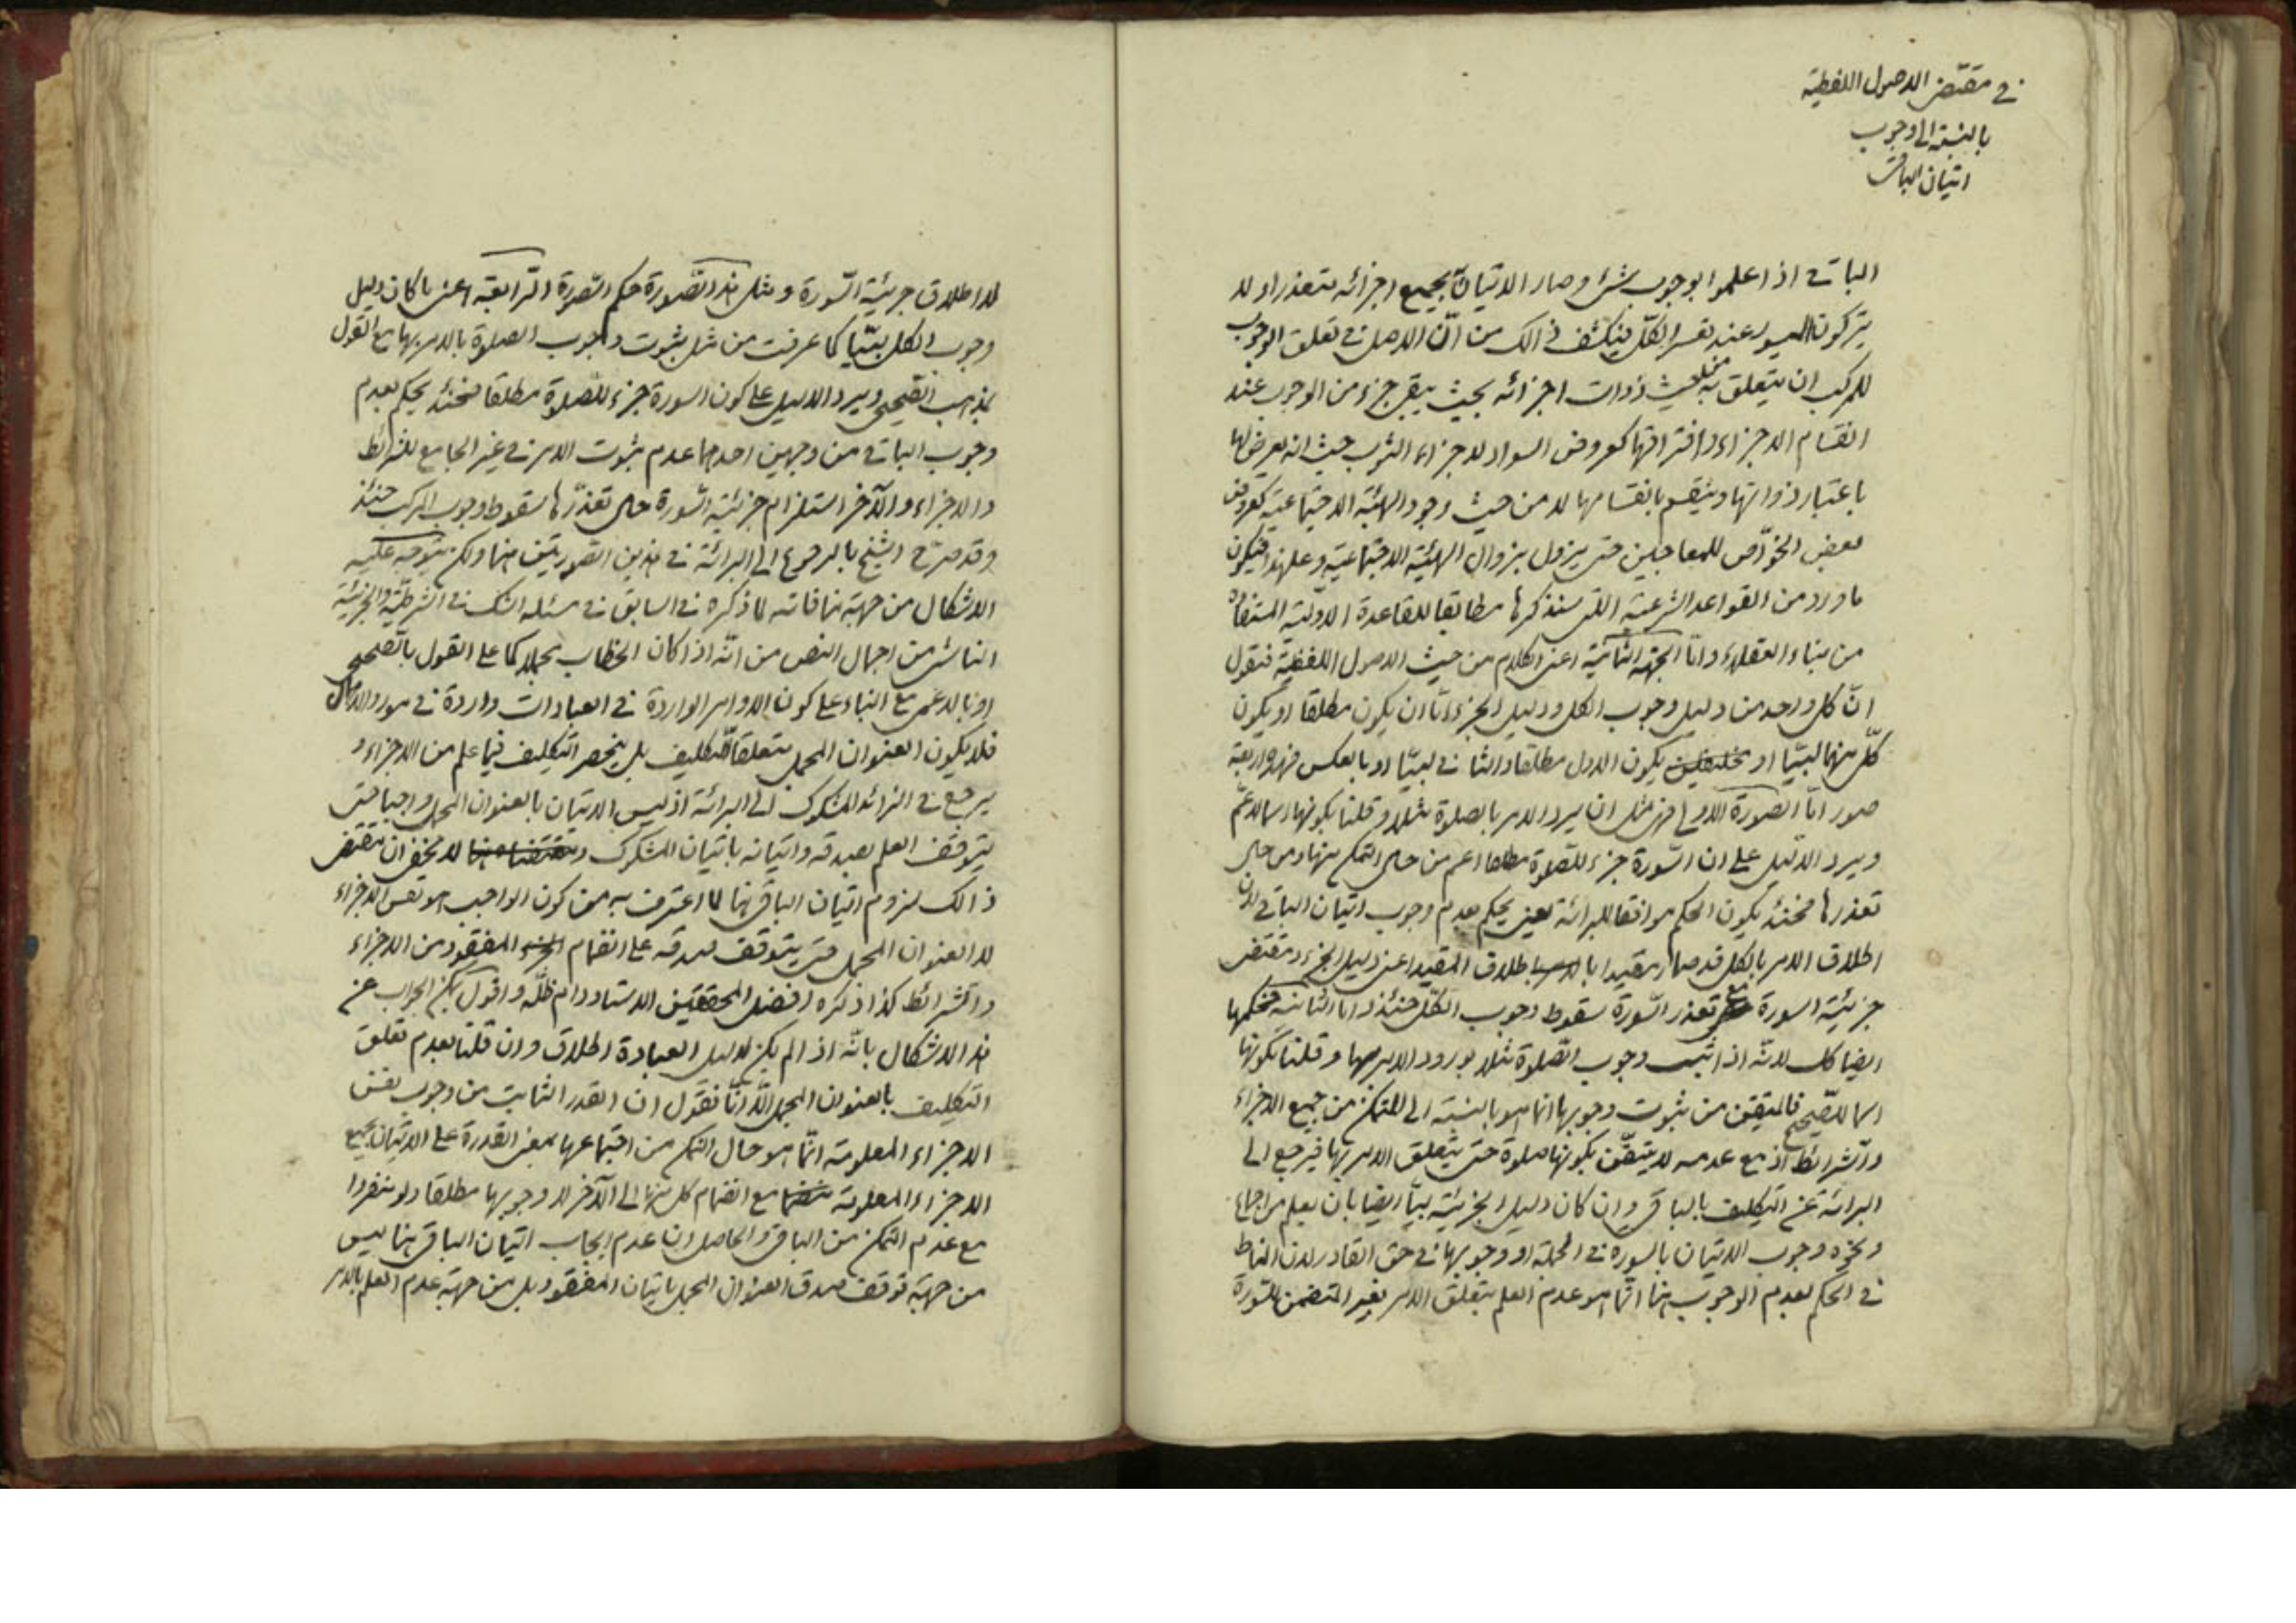 في مقتضى الاصول اللفظية
بالنسبة الى وجوب
اتيان الباقى
الباقي اذا علموا بوجوب شئ وصار الاتيان بجميع اجزائه متعذرا ولا
يتركون الميسور عند تعسر الكل فينكشف ذالك من انّ الاصل في تعلق الوجوب
للمركب ان يتعلق به من حيث ذوات اجزائه بحيث يبقى جزء من الوجوب عند
انقسام الاجزاء وافتراقها كعروض السواد لاجزاء الثوب حيث انه يعرض لها
باعتبار ذواتها وينقسم بانقسامها لا من حيث وجود الهيئة الاجتماعية كعروض
بعض الخوّاص للمعاجين حتى يزول بزوال الهيئة الاجتماعية وعلى هذا فيكون
ما ورد من القواعد الشرعية التى سنذكرها مطابقا للقاعدة الاولية المستفادة
من بناء العقلاء وامّا الجهة الثانية اعنى الكلام من حيث الاصول اللفظية فنقول
انّ كل واحد من دليل وجوب الكل ودليل الجزء امّا ان يكون مطلقا او يكون
كلّ منهما لبيّا او يكون الاول مطلقا والثاني لبيّا او بالعكس فهذه اربعة
صور امّا الصورة الاولى فهى مثل ان يرد الامر بالصلوة مثلا وقلنا بكونها اسما للاعمّ
ويرد الدّليل على ان السّورة جزء للصّلوة مطلقا اعم من حال التمكن منها ومن حال
تعذرها فحينئذ يكون الحكم موافقا للبرائة بمعنى يحكم بعدم وجوب اتيان الباقي لان
اطلاق الامر بالكل قد صار مقيدا باطلاق المقيد اعنى دليل الجزء ومقتضى
جزئية السورة مع تعذر السّورة سقوط وجوب الكلّ حينئذ وامّا الثانية فحكمها
ايضا كك لانّه اذا ثبت وجوب الصّلوة مثلا بورود الامر بها وقلنا بكونها
اسما للصّحيح فالمتيقن من ثبوت وجوبها انما هو بالنسبة الى المتمكن من جميع الاجزاء
والشرائط اذ مع عدمه لا يتيقّن بكونها صلوة حتى يتعلق الامر بها فيرجع الى
البرائة عن التكليف بالباقى وان كان دليل الجزئية لبيّا ايضا بان يعلم من اجماع
ونحوه وجوب الاتيان بالسورة في الجملة او وجوبها في حق القادر لان المناط
في الحكم بعدم الوجوب هنا انّما هو عدم العلم بتعلق الامر بغير المتضمن للسّورة
لا اطلاق جزئية السّورة ومثل هذه الصّورة حكم الصّورة الرّابعة اعنى ما كان دليل
وجوب الكل لبيّا كما عرفت من مثل ثبوت وجوب الصلوة بالامر بها مع القول
بمذهب الصّحيحى ويرد الدليل على كون السورة جزء للصّلوة مطلقا فحينئذ يحكم بعدم
وجوب الباقي من وجهين احدهما عدم ثبوت الامر في غير الجامع للشرائط
والاجزاء والآخر استلزام جزئية السّورة حال تعذّرها سقوط وجوب المركب حينئذ
وقد صرّح الشيخ بالرجوع الى البرائة في هذين الصّورتين هنا ولكن يتوجه عليه
الاشكال من جهة منافاته لما ذكره في السابق في مسئلة الشك في الشرطيّة والجزئيّة
الناشى من اجمال النص من انّه اذا كان الخطاب مجملا كما على القول بالصّحيحى
او بالاعمى مع البناء على كون الاوامر الواردة في العبادات واردة في مورد الاهمال
فلا يكون العنوان المجمل متعلقا للتكليف بل ينحصر التكليف فيما علم من الاجزاء و
يرجع في الزائد المشكوك الى البرائة اذ ليس الاتيان بالعنوان المجمل واجبا حتى
يتوقف العلم بصدقه واتيانه باتيان المشكوك ولا يخفى ان مقتضى
ذالك لزوم اتيان الباقى هنا لما اعترف به من كون الواجب هو نفس الاجزاء
لا العنوان المجمل حتى يتوقف صدقه على انضمام المفقود من الاجزاء
والشرائط كذا ذكره افضل المحققين الاستاد دام ظلّه واقول يمكن الجواب عن
هذا الاشكال بانّه اذا لم يكن لدليل العبادة اطلاق وان قلنا بعدم تعلق
التكليف بالعنوان المجمل الّا انّا نقول ان القدر الثابت من وجوب نفس
الاجزاء المعلومة انّما هو حال التمكن من اجتماعها بمعنى القدرة على الاتيان بجميع
الاجزاء المعلومة مع انضمام كل منها الى الآخر لا وجوبها مطلقا ولو منفردا
مع عدم التمكن من الباقى والحاصل ان عدم ايجاب اتيان الباقى هنا ليس
من جهة توقف صدق العنوان المجمل باتيان المفقود بل من جهة عدم العلم بالامر